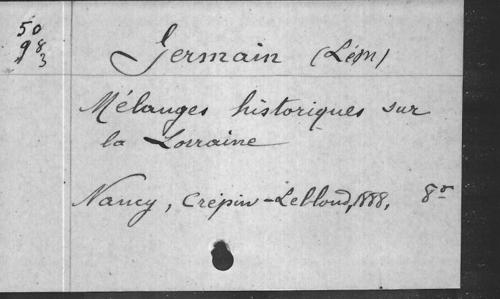 50
98
3
Germain (Léon)
Mélanges historiques sur
la Lorraine
Nancy, Crépin-Leblond, 1888, 8º